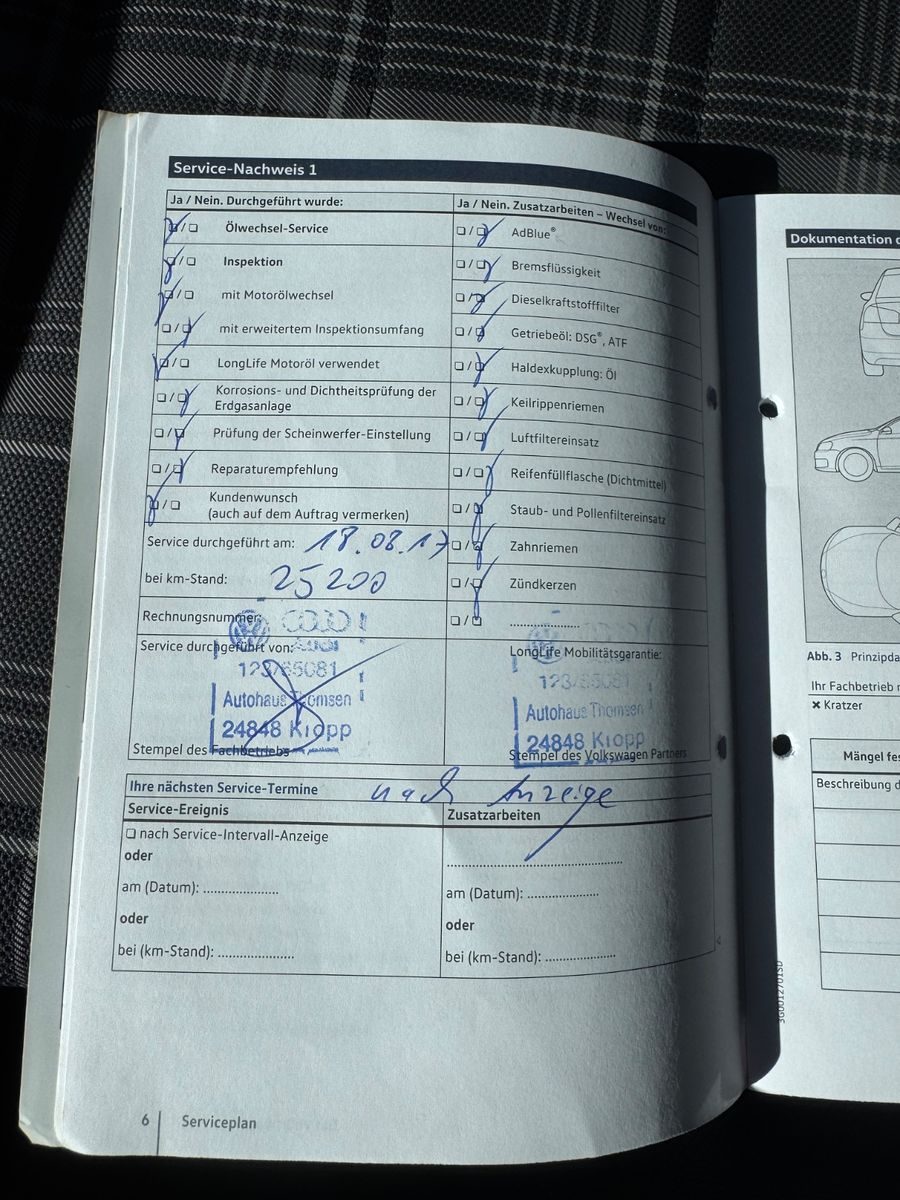 Service-Nachweis 1
Ja / Nein. Durchgeführt wurde:
❏ / ❏ Ölwechsel-Service
❏ / ❏ Inspektion
❏ / ❏ mit Motorölwechsel
❏ / ❏ mit erweitertem Inspektionsumfang
❏ / ❏ LongLife Motoröl verwendet
❏ / ❏ Korrosions- und Dichtheitsprüfung der
Erdgasanlage
❏ / ❏ Prüfung der Scheinwerfer-Einstellung
❏ / ❏ Reparaturempfehlung
❏ / ❏ Kundenwunsch
(auch auf dem Auftrag vermerken)
Service durchgeführt am: 18.08.17
bei km-Stand: 25200
Rechnungsnummer:
Service durchgeführt von:
Audi
123/85081
Autohaus Thomsen
24848 Kropp
Stempel des Fachbetriebs
Ja / Nein. Zusatzarbeiten – Wechsel von:
❏ / ❏ AdBlue®
❏ / ❏ Bremsflüssigkeit
❏ / ❏ Dieselkraftstofffilter
❏ / ❏ Getriebeöl: DSG®, ATF
❏ / ❏ Haldexkupplung: Öl
❏ / ❏ Keilrippenriemen
❏ / ❏ Luftfiltereinsatz
❏ / ❏ Reifenfüllflasche (Dichtmittel)
❏ / ❏ Staub- und Pollenfiltereinsatz
❏ / ❏ Zahnriemen
❏ / ❏ Zündkerzen
❏ / ❏ ....................
LongLife Mobilitätsgarantie:
123/85081
Autohaus Thomsen
24848 Kropp
Stempel des Volkswagen Partners
Ihre nächsten Service-Termine nach Anzeige
Service-Ereignis
❏ nach Service-Intervall-Anzeige
oder
am (Datum): ....................
oder
bei (km-Stand): ....................
Zusatzarbeiten
..................................................
am (Datum): ....................
oder
bei (km-Stand): ....................
6 Serviceplan
Dokumentation
Abb. 3
Ihr Fachbetrieb
✖ Kratzer
Mängel
Beschreibung
3G0012701SD